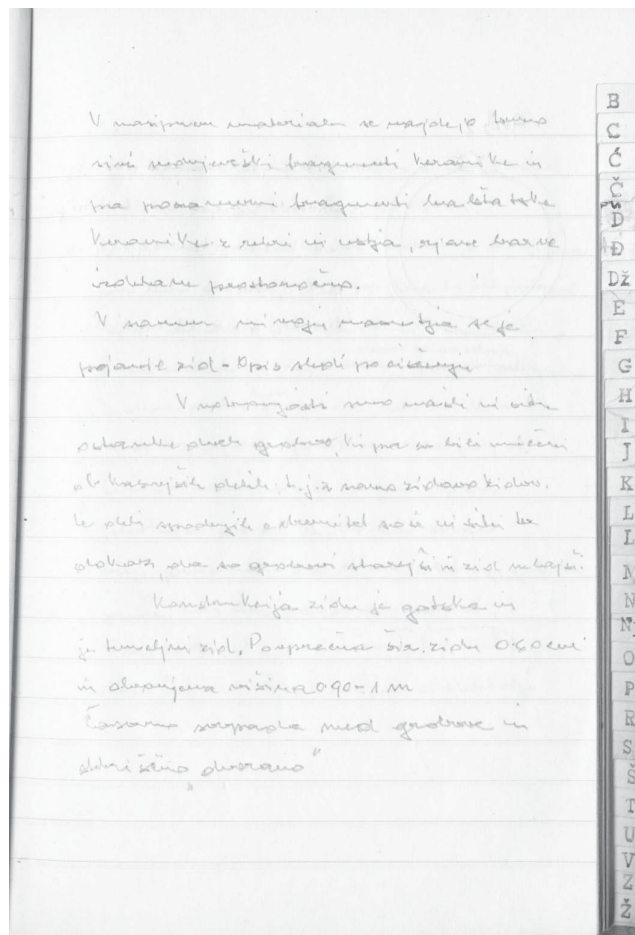 V nasipnem materialu se najdejo temno
sivi srednjeveški fragmenti keramike in
pa posamezni fragmenti halštatske
keramike z reber in ustja, rjave barve
izdelane prostoročno.
V samem nivoju nasutja se je
pojavil zid - Opis sledi po čiščenju
V notranjosti smo našli in situ
ostanke dveh grobov, ki pa so bili uničeni
ob kasnejših delih, t.j. z samo zidavo zidov.
le deli spodnjih ekstremitet so in situ
dokaz, da so grobovi starejši in zid mlajši.
Konstrukcija zidu je gotska in
je temeljni zid. Povprečna šir. zidu 0.60 cm
in ohranjena višina 0.90 - 1 m
Časovno sovpada med grobove in
"dvorano"
B
C
Ć
Č
D
Đ
Dž
E
F
G
H
I
J
K
L
L
M
N
N
O
P
R
S
Š
T
U
V
Z
Ž